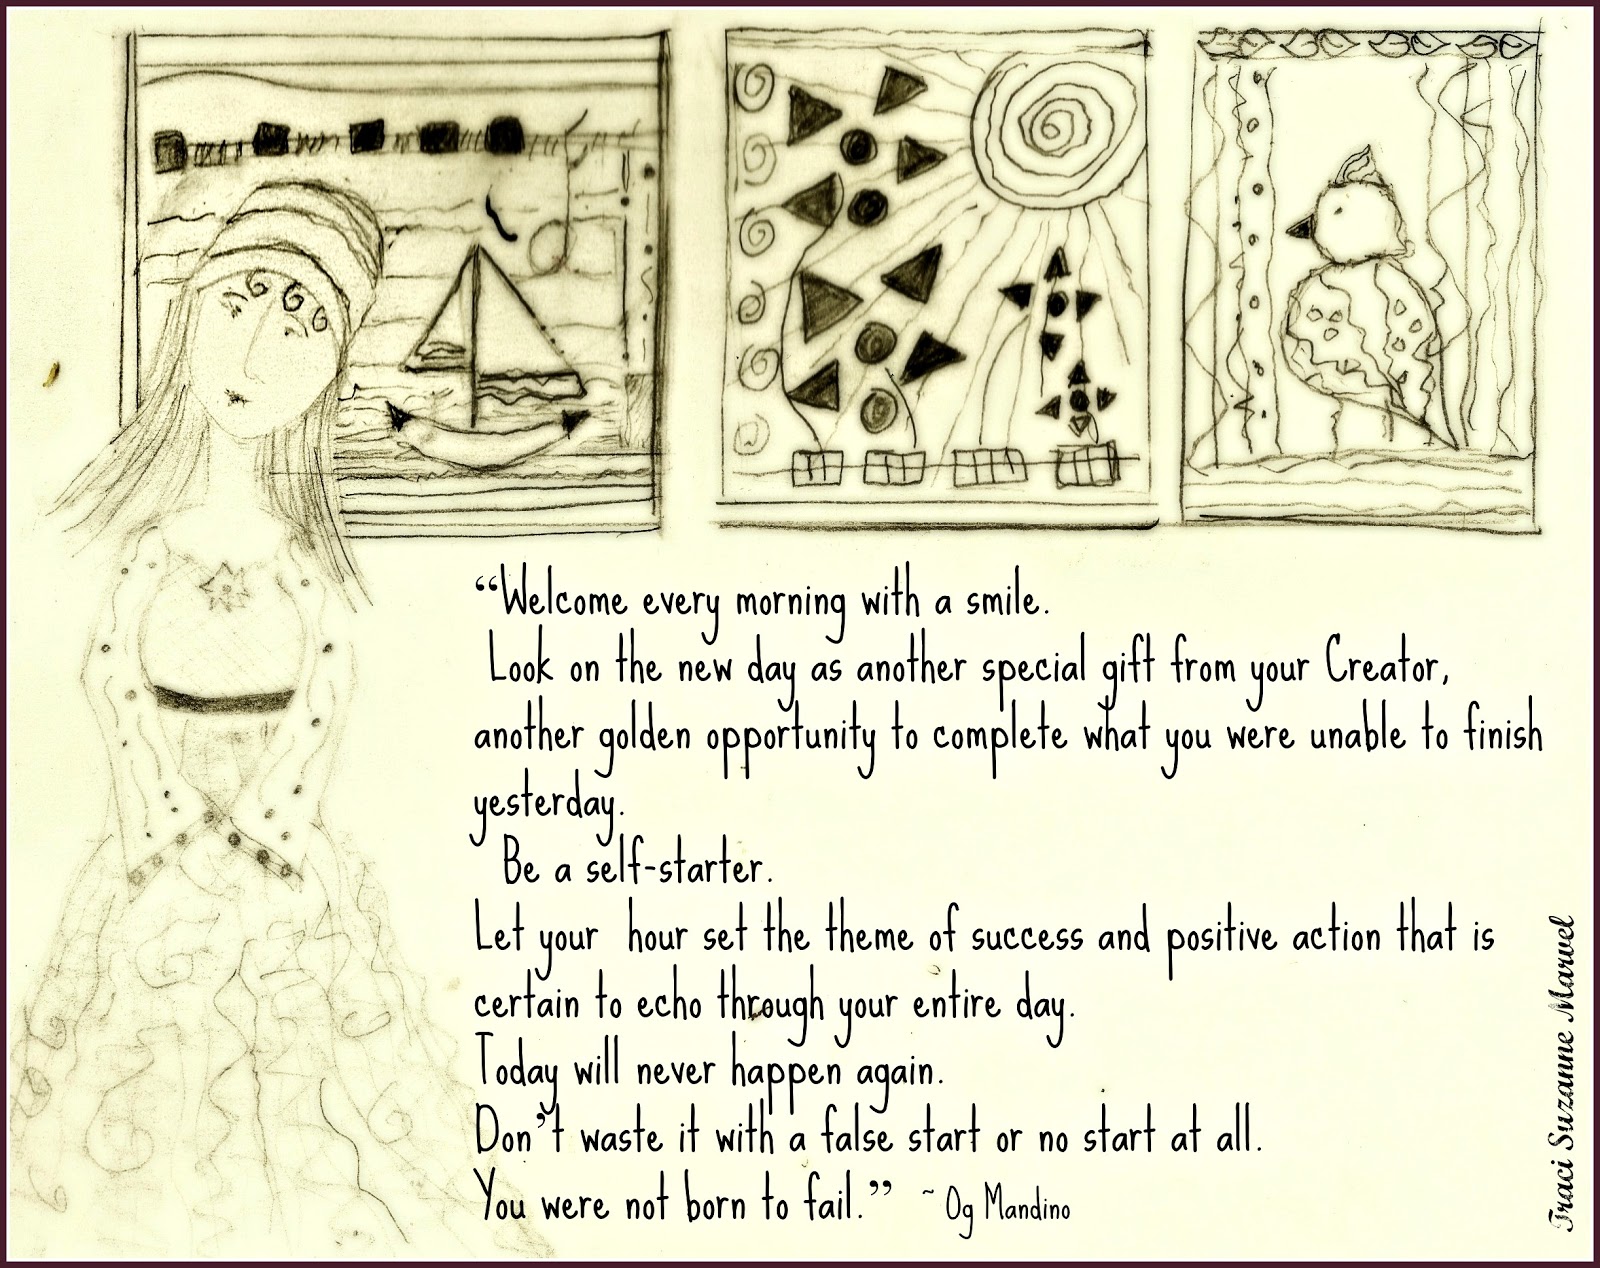 “Welcome every morning with a smile.
Look on the new day as another special gift from your Creator,
another golden opportunity to complete what you were unable to finish
yesterday.
Be a self-starter.
Let your hour set the theme of success and positive action that is
certain to echo through your entire day.
Today will never happen again.
Don’t waste it with a false start or no start at all.
You were not born to fail.” ~ Og Mandino
Traci Suzanne Marvel